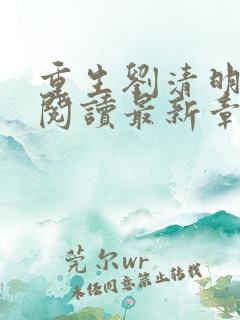 重生劉清明
閱讀最新章
莞尔wr
未经同意禁止转载